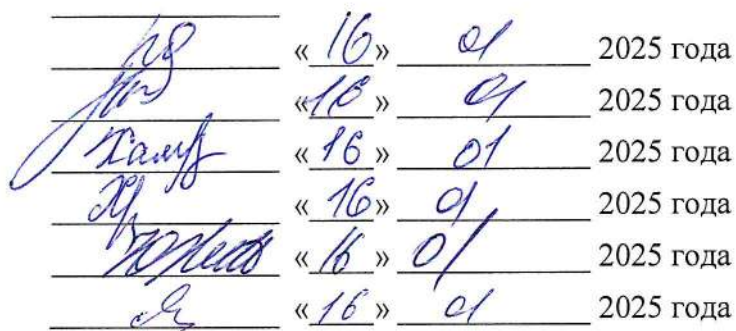 « 16 » 01 2025 года
« 16 » 01 2025 года
« 16 » 01 2025 года
« 16 » 01 2025 года
« 16 » 01 2025 года
« 16 » 01 2025 года